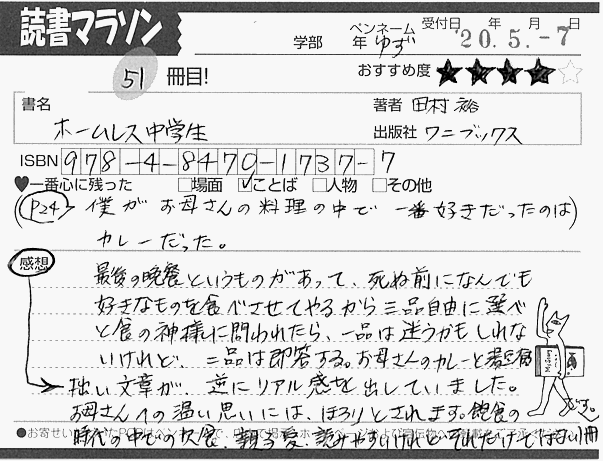 読書マラソン
学部 年 ペンネーム ゆず 受付日 年 月 日 '20.5.-7
51 冊目! おすすめ度 ★★★★☆
書名 著者 田村 裕
ホームレス中学生 出版社 ワニブックス
ISBN 978-4-8470-1737-7
♥一番心に残った □場面 ☑ことば □人物 □その他
(P24→僕がお母さんの料理の中で一番好きだったのは)
カレーだった。
感想
最後の晩餐というものがあって、死ぬ前になんでも
好きなものを食べさせてやるから三品自由に選べ
と食の神様に問われたら、一品は迷うかもしれな
いけれど、二品は即答する。お母さんのカレーと湯豆腐
→拙い文章が、逆にリアル感を出していました。
お母さんへの温い思いには、ほろりとされます。飽食の
時代の中での欠食、親子愛、読みやすいけれどそれだけではない1冊
●お寄せい